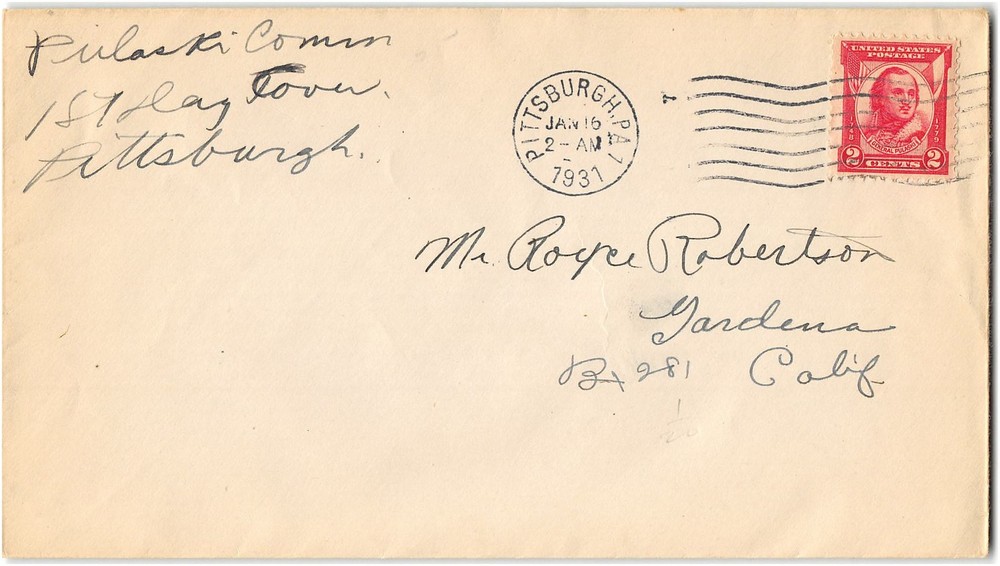 Pulaski Comm
1st Day Cover.
Pittsburgh.
PITTSBURGH, PA. 1
JAN 16
2 - AM
1931
UNITED STATES
POSTAGE
1748
1779
GENERAL PULASKI
2 CENTS 2
Mr Royce Robertson
Gardena
Bx 281 Calif
1
20